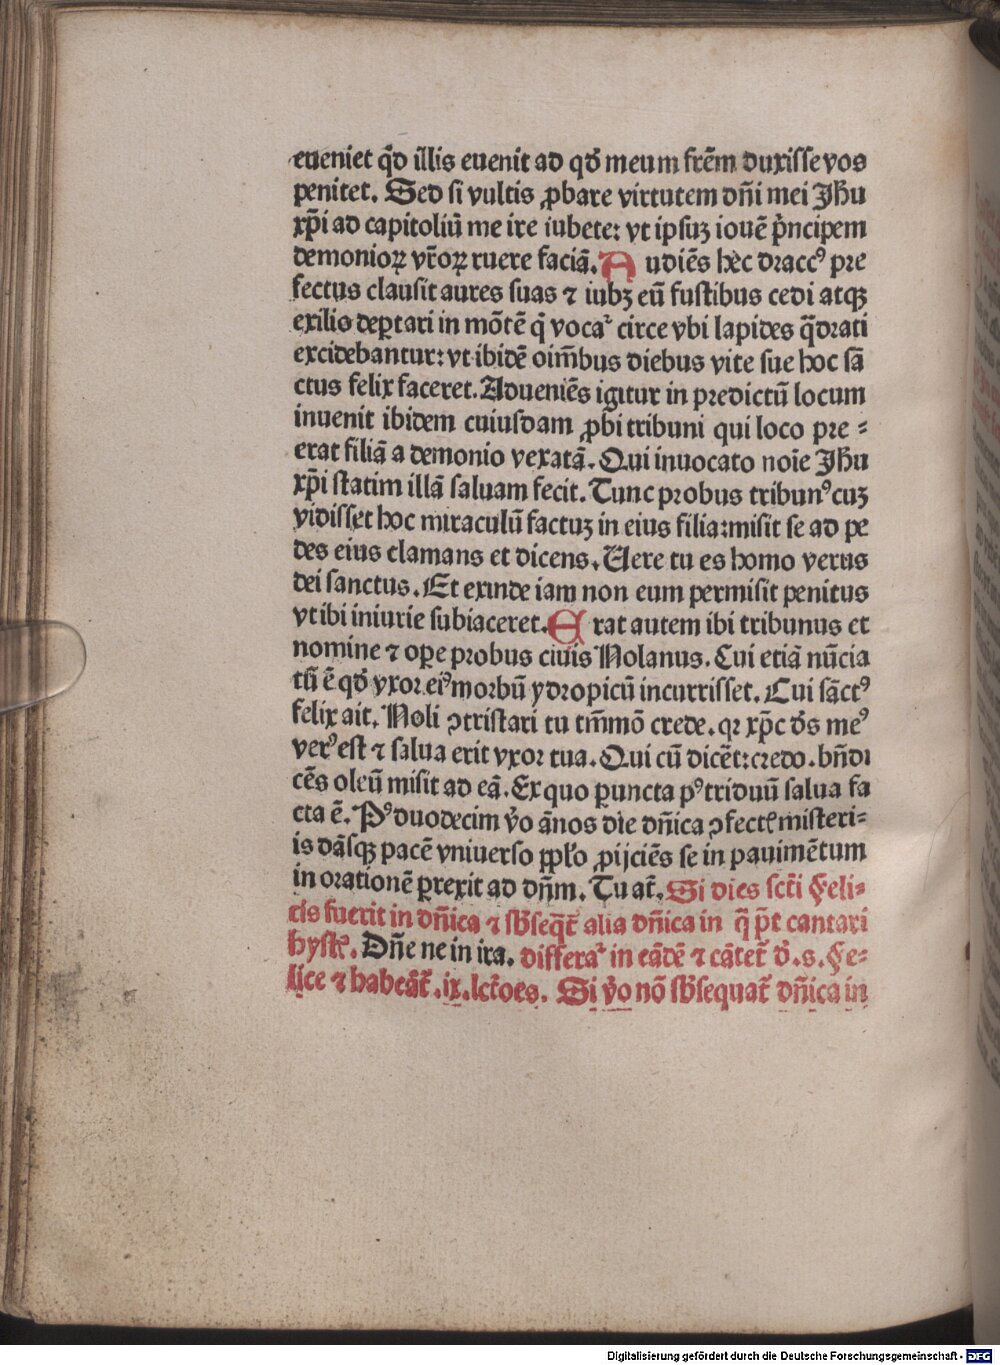 eueniet qd̄ illis euenit ad qd̄ meum frēm duxisse vos
penitet. Sed si vultis ꝓbare virtutem dn̄i mei Jhu
xp̄i ad capitoliū me ire iubete: vt ipsuꝫ iouē p̄ncipem
demonioꝝ vr̄oꝝ ruere faciā. Audiēs hec dracc⁹ pre
fectus clausit aures suas ⁊ iubꝫ eū fustibus cedi atqꝫ
exilio deꝑtari in mōtē q̄ voca᷑ circe vbi lapides q̄drati
excidebantur: vt ibidē oim̄bus diebus vite sue hoc sā
ctus felix faceret. Adueniēs igitur in predictū locum
inuenit ibidem cuiusdam ꝓbi tribuni qui loco pre⸗
erat filiā a demonio vexatā. Qui inuocato noīe Jhu
xp̄i statim illā saluam fecit. Tunc probus tribun⁹ cuꝫ
vidisset hoc miraculū factuꝫ in eius filia: misit se ad pe
des eius clamans et dicens. Uere tu es homo verus
dei sanctus. Et exinde iam non eum permisit penitus
vt ibi iniurie subiaceret. Erat autem ibi tribunus et
nomine ⁊ oꝑe probus ciuis Nolanus. Cui etiā nūcia
tū ē qd̄ vxor ei⁹ morbū ydropicū incurrisset. Cui sāct⁹
felix ait. Noli ꝯtristari tu tm̄mō crede. qꝛ xp̄c ds̄ me⁹
ver⁹ est ⁊ salua erit vxor tua. Qui cū dicēt: credo. bn̄di
cēs oleū misit ad eā. Ex quo ꝑuncta p⁹ triduū salua fa
cta ē. P⁹ duodecim v̄o ānos die dn̄ica ꝯfectꝭ misteri⸗
is dāsqꝫ pacē vniuerso ꝓpl̄o ꝓijciēs se in pauimētum
in orationē ꝑrexit ad dn̄m. Tu at̄. Si dies sct̄i Feli⸗
cis fuerit in dn̄ica ⁊ sb̄seqt̄ alia dn̄ica in q̄ p̄t cantari
hystꝭ. Dn̄e ne in ira. differa᷑ in eādē ⁊ cātet᷑ d̄. s. Fe⸗
lice ⁊ habeāt᷑ .ix. lct̄oes. Si v̄o nō sb̄sequat᷑ dn̄ica in
Digitalisierung gefördert durch die Deutsche Forschungsgemeinschaft - DFG